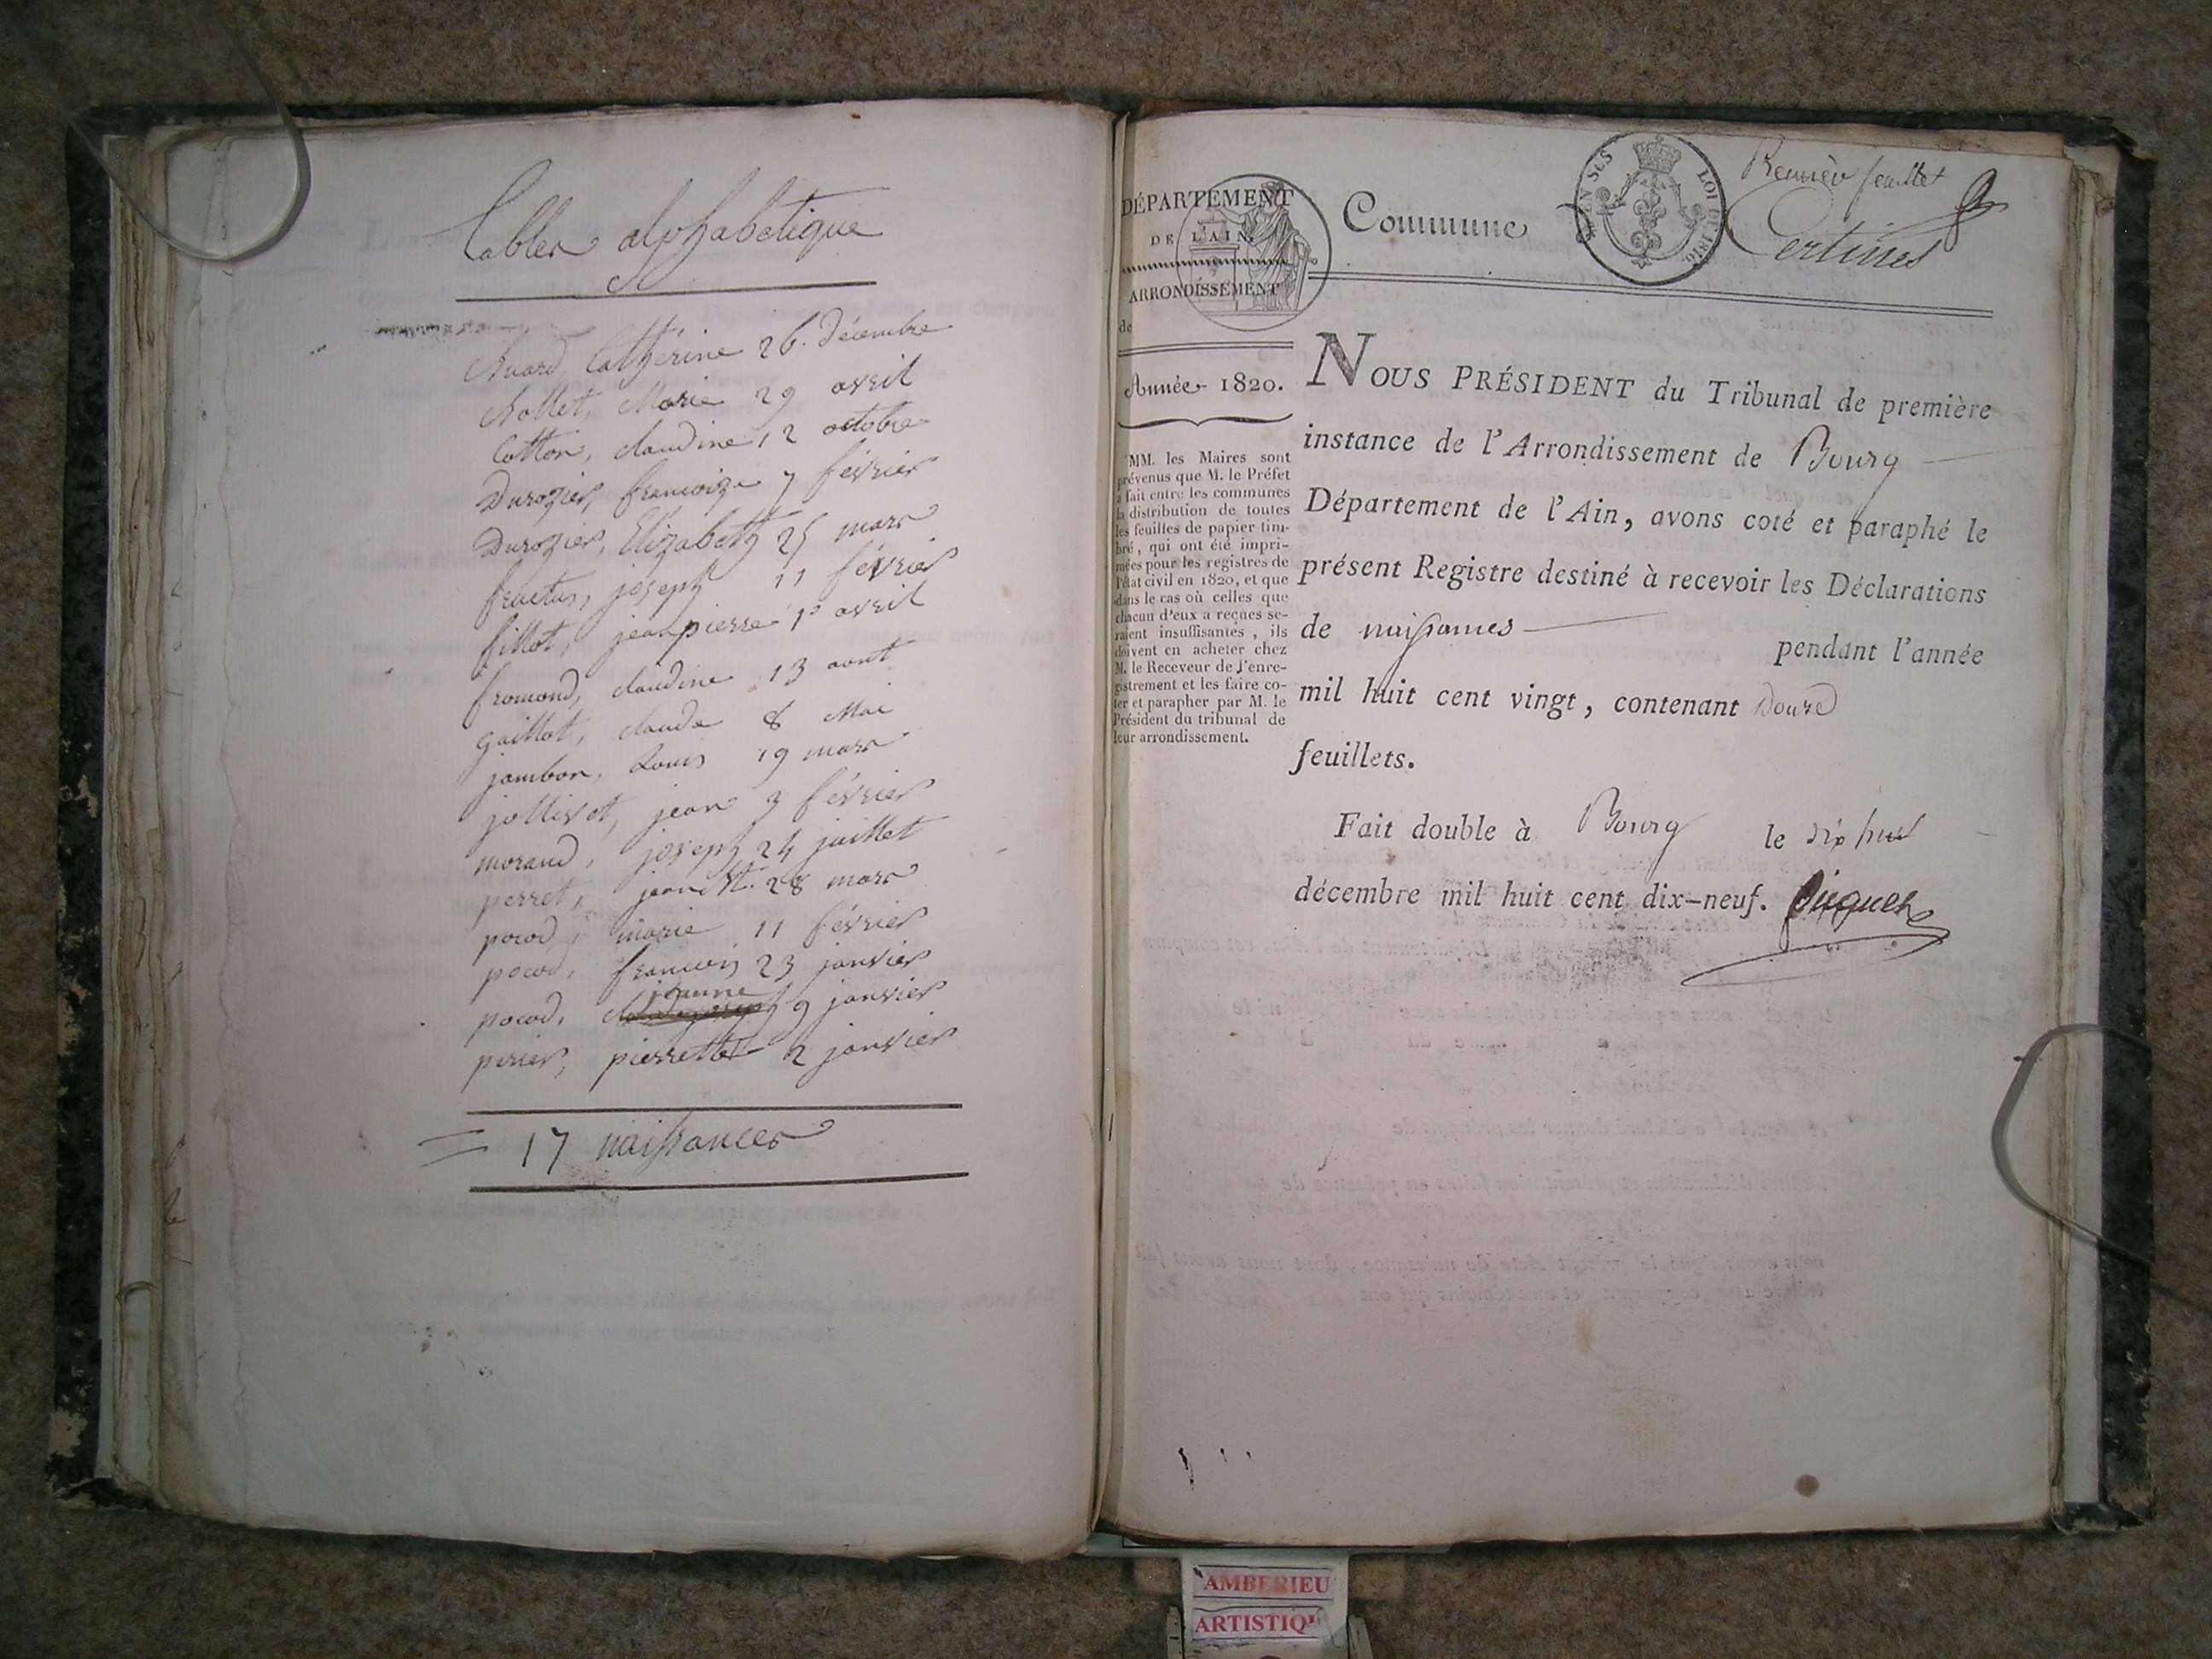 Tables alphabetique
Chuard, Catherine 26. Décembre
Chollet, Marie 29 avril
Cotton, claudine 12 octobre
Durozier, françoize 7 février
Durozier, Elizabeth 25 mars
joseph 11 février
fillot, jean pierre 1er avril
fromond, claudine 13 aout
gaillot, claude 8 Mai
jambon, Louis 19 mars
jollivet, jean 3 février
morand, joseph 24 juillet
perret, jean Bte. 28 mars
pocod, marie 11 février
pocod, francois 23 janvier
jeanne
pocod, 9 janvier
perier, pierrette 2 janvier
= 17 naissances
DÉPARTEMENT
DE L'AIN.
ARRONDISSEMENT
de
Année 1820.
MM. les Maires sont
prévenus que M. le Préfet
a fait entre les communes
la distribution de toutes
les feuilles de papier tim-
bré, qui ont été impri-
mées pour les registres de
l'état civil en 1820, et que
dans le cas où celles que
chacun d'eux a reçues se-
raient insuffisantes, ils
doivent en acheter chez
M. le Receveur de l'enre-
gistrement et les faire co-
ter et parapher par M. le
Président du tribunal de
leur arrondissement.
Premier feuillet
Commune de Certines
EN SUS
LOI DE 1816.
NOUS PRÉSIDENT du Tribunal de première
instance de l'Arrondissement de Bourg
Département de l'Ain, avons coté et paraphé le
présent Registre destiné à recevoir les Déclarations
de naissances pendant l'année
mil huit cent vingt, contenant Douze
feuillets.
Fait double à Bourg le dix huit
décembre mil huit cent dix-neuf.
AMBERIEU
ARTISTIQU